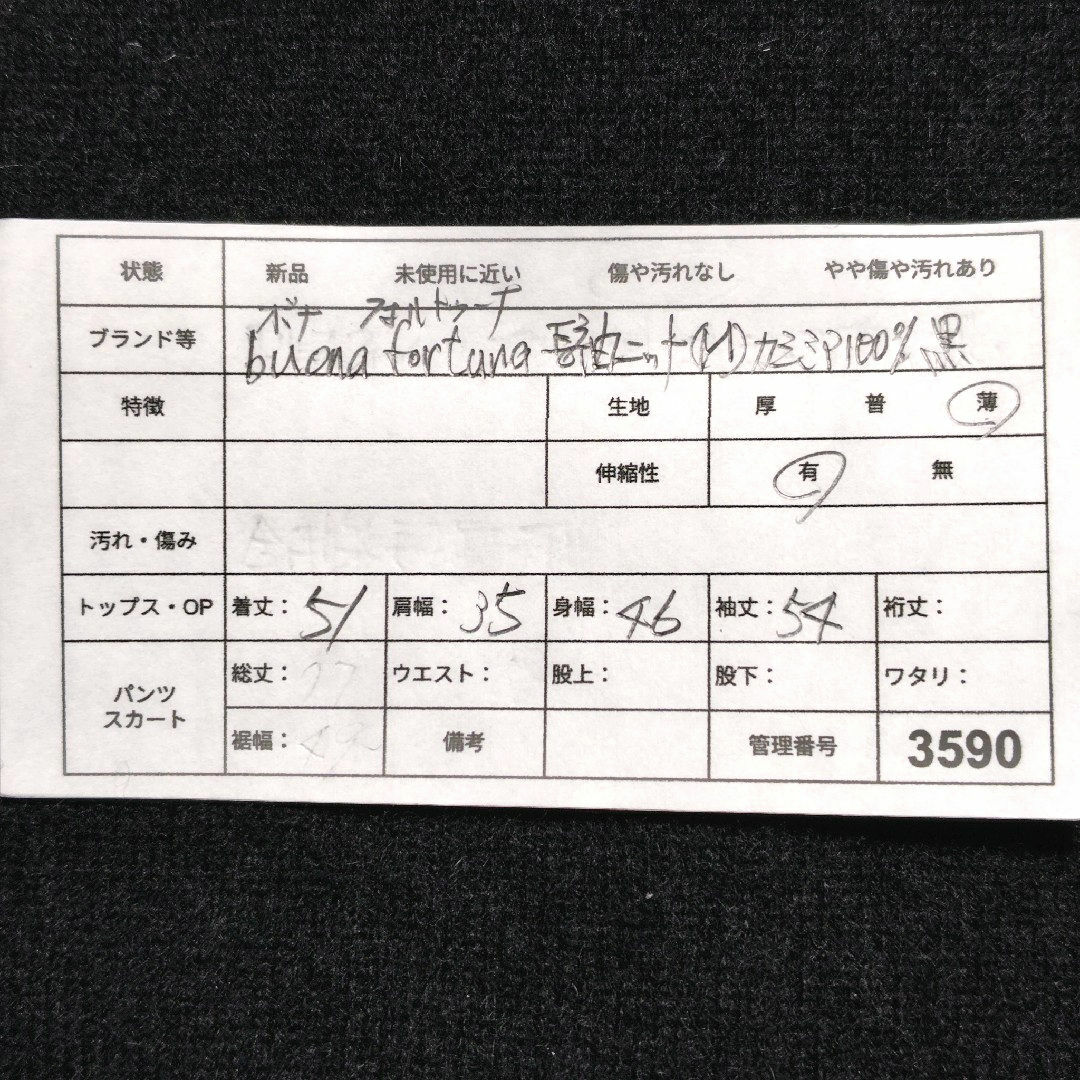 状態 新品 未使用に近い 傷や汚れなし やや傷や汚れあり
ボナ フォルトゥーナ
ブランド等 buona fortuna 長袖ニット(M)カシミヤ100%黒
特徴 生地 厚 普 薄
伸縮性 有 無
汚れ・傷み
トップス・OP 着丈:51 肩幅:35 身幅:46 袖丈:54 裄丈:
パンツ スカート 総丈: ウエスト: 股上: 股下: ワタリ:
裾幅: 備考 管理番号 3590